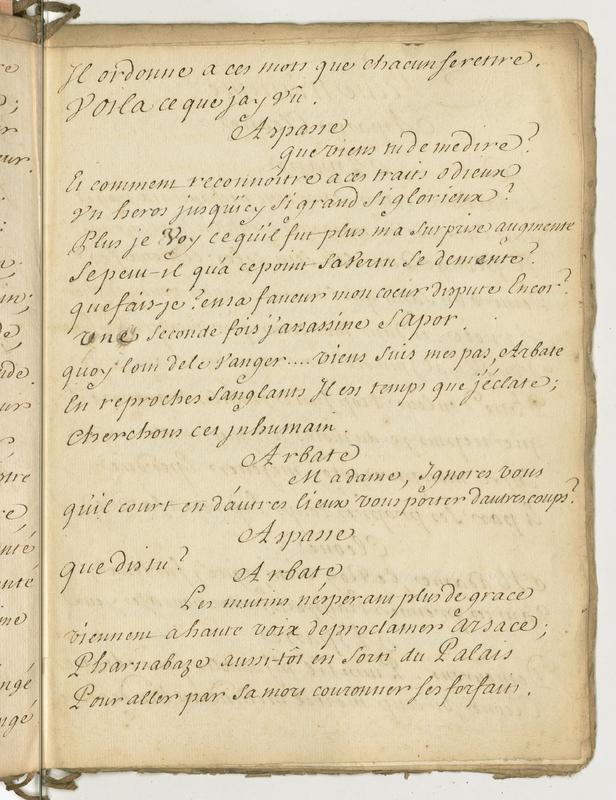 Il ordonne a ces mots que chacun se retire.
Voila ce que j'ay vû.
Aspasie
que viens tu de me dire?
Et comment reconnoître a ces traits odieux
Vn heros jusqu'icy si grand si glorieux?
Plus je Voy ce qu'il fut plus ma surprise augmente
Se peut-il qu'a ce point sa Vertu se demente?
que fais-je? en sa faveur mon coeur dispute Encor?
Une seconde fois j'assassine Sapor.
quoy loin de le Vanger.... viens suis mes pas, Arbate
En reproches sanglants Il est temps que j'éclate;
Cherchons cet jnhumain.
Arbate
Madame, Ignorez vous
qu'il court en d'autres lieux vous porter d'autres coups?
Aspasie
que dis tu?
Arbate
Les mutins n'ésperant plus de grace
viennent a haute voix de proclamer Arsace;
Pharnabaze aussi-tôt est sorti du Palais
Pour aller par sa mort couronner ses forfaits.
re
;
ur
eur.
n;
in;
de,
nde.
urs
re
enté
enté
me
ngé
ngé